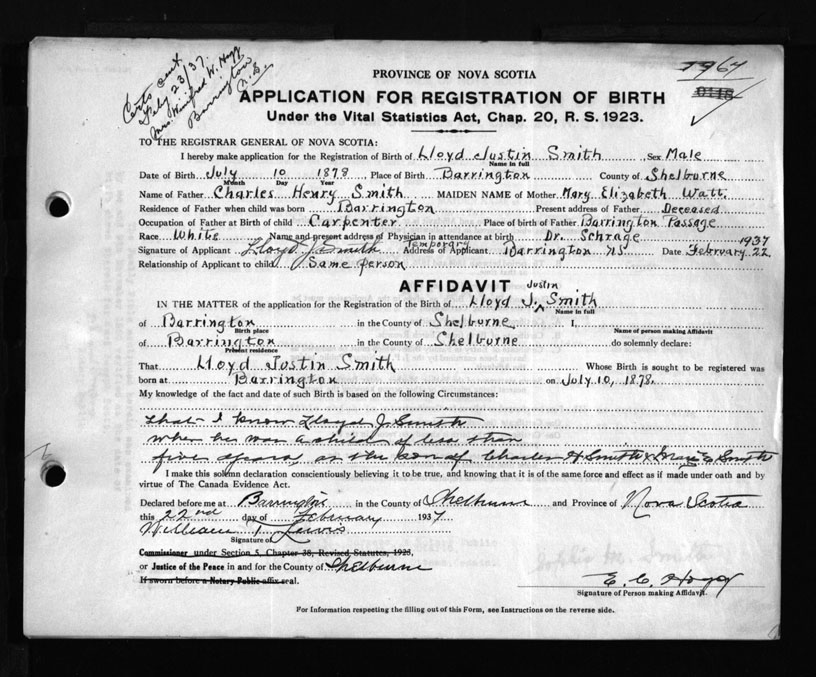 Certs sent
Feb 23/37.
Mrs. Winifred W. Hogg
Barrington
N.S.
1967
PROVINCE OF NOVA SCOTIA
APPLICATION FOR REGISTRATION OF BIRTH
Under the Vital Statistics Act, Chap. 20, R. S. 1923.
TO THE REGISTRAR GENERAL OF NOVA SCOTIA:
I hereby make application for the Registration of Birth of Lloyd Justin Smith Sex Male
Name in full
Date of Birth July 10 1878 Place of Birth Barrington County of Shelburne
Month Day Year
Name of Father Charles Henry Smith MAIDEN NAME of Mother Mary Elizabeth Watt.
Residence of Father when child was born Barrington Present address of Father Deceased
Occupation of Father at Birth of child Carpenter Place of birth of Father Barrington Passage
Race White Name and present address of Physician in attendance at birth Dr. Schrage
Signature of Applicant Lloyd J. Smith Temporary Address of Applicant Barrington NS Date February 22 1937
Relationship of Applicant to child Same person
AFFIDAVIT
IN THE MATTER of the application for the Registration of the Birth of Lloyd J. Justin Smith
Name in full
of Barrington in the County of Shelburne I,
Birth place Name of person making Affidavit
of Barrington in the County of Shelburne do solemnly declare:
Present residence
That Lloyd Justin Smith Whose Birth is sought to be registered was
born at Barrington on July 10, 1878.
My knowledge of the fact and date of such Birth is based on the following Circumstances:
that I know Lloyd J. Smith
when he was a child of less than
five years, as the son of Charles H Smith & Mary E Smith
I make this solemn declaration conscientiously believing it to be true, and knowing that it is of the same force and effect as if made under oath and by
virtue of The Canada Evidence Act.
Declared before me at Barrington in the County of Shelburne and Province of Nova Scotia
this 22nd day of February 1937
William T Lewis
Signature of
Commissioner under Section 5, Chapter 38, Revised Statutes, 1923,
or Justice of the Peace in and for the County of Shelburne
If sworn before a Notary Public affix seal.
E. C. Hogg
Signature of Person making Affidavit.
For Information respecting the filling out of this Form, see Instructions on the reverse side.